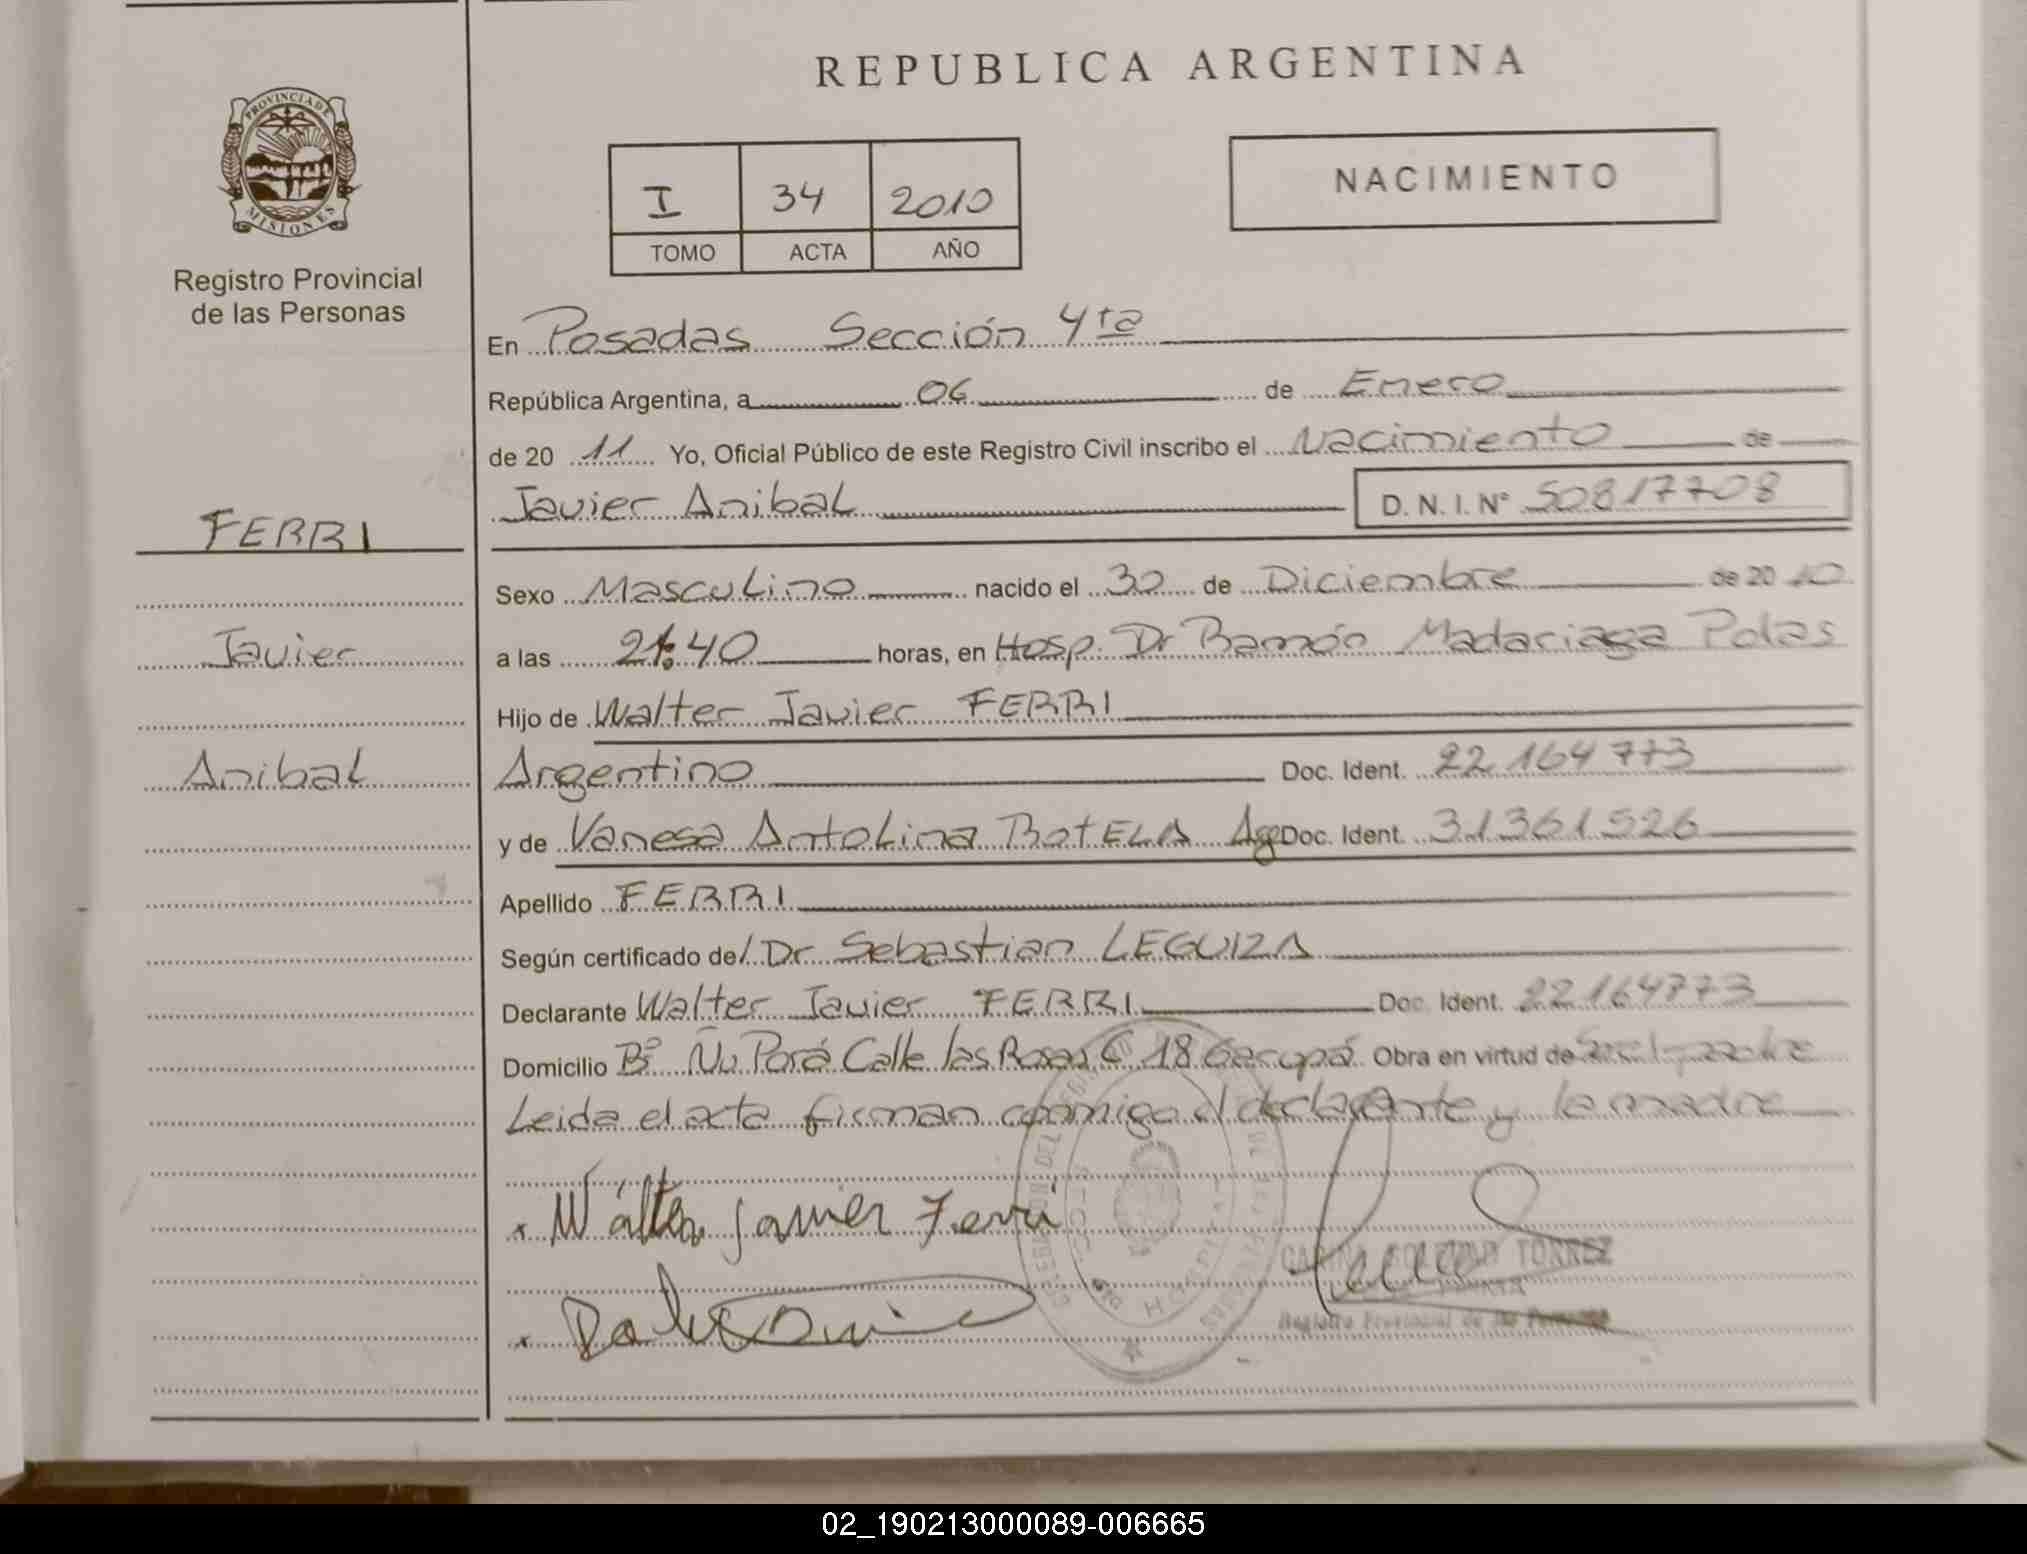 REPUBLICA ARGENTINA
PROVINCIA DE
MISIONES
Registro Provincial
de las Personas
I 34 2010
TOMO ACTA AÑO
NACIMIENTO
En Posadas Sección 4ta
República Argentina, a 06 de Enero
de 20 11 Yo, Oficial Público de este Registro Civil inscribo el Nacimiento de
Javier Anibal D. N. I. Nº 50817708
FERRI
Javier
Anibal
Sexo Masculino nacido el 30 de Diciembre de 20 10
a las 21:40 horas, en Hosp. Dr Ramón Madariaga Pdas
Hijo de Walter Javier FERRI
Argentino Doc. Ident. 22 164 773
y de Vanesa Antolina BotELA Arg Doc. Ident. 31361526
Apellido FERRI
Según certificado de/ Dr Sebastian LEGUIZA
Declarante Walter Javier FERRI Doc. Ident. 22164773
Domicilio Bº Ñu Porá Calle las Rosas C 18 Garupá Obra en virtud de
Leida el acta firman conmigo el declarante y la madre
x Wálter Javier Ferri
x
TORREZ
Registro Provincial de las Personas
02_190213000089-006665